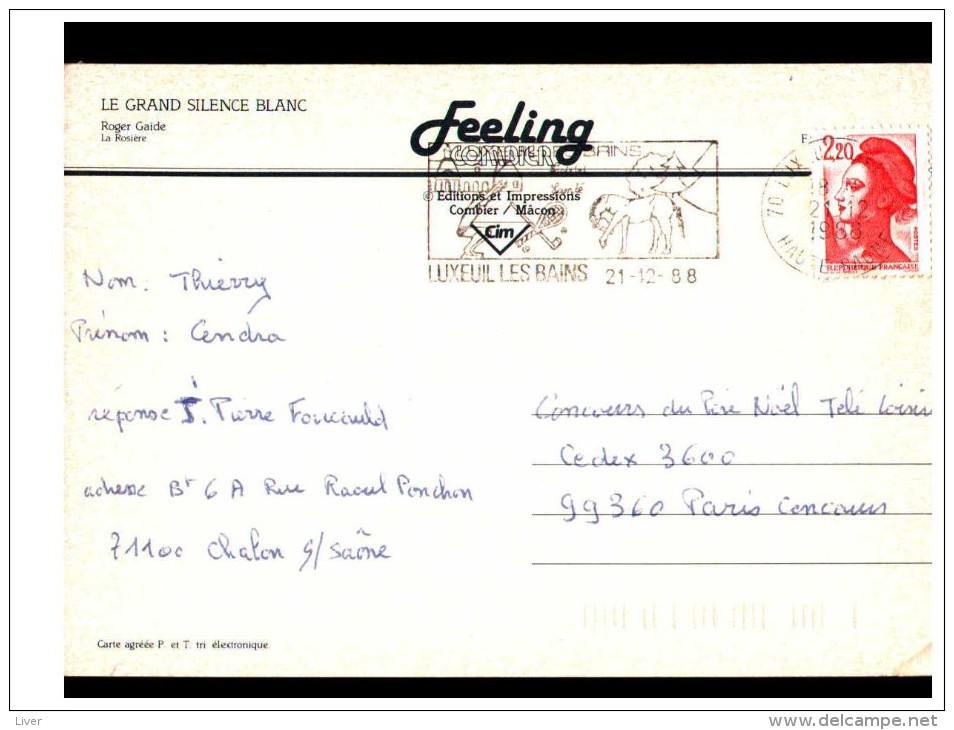 LE GRAND SILENCE BLANC
Roger Gaide
La Rosière
Feeling
COMBIER
BAINS
© Editions et Impressions
Combier / Mâcon
Cim
LUXEUIL LES BAINS 21-12-88
2,20
POSTES
REPUBLIQUE FRANÇAISE
70 LUX
18
21-12
1988
HAUTE SAONE
Nom : Thierry
Prénom : Cendra
réponse I. Pierre Foucauld
adresse Bt 6 A Rue Raoul Ponchon
71100 Chalon s/Saône
Concours du Père Noël Télé Loisir
Cedex 3600
99360 Paris Concours
Carte agréée P. et T. tri électronique
Liver
www.delcampe.net